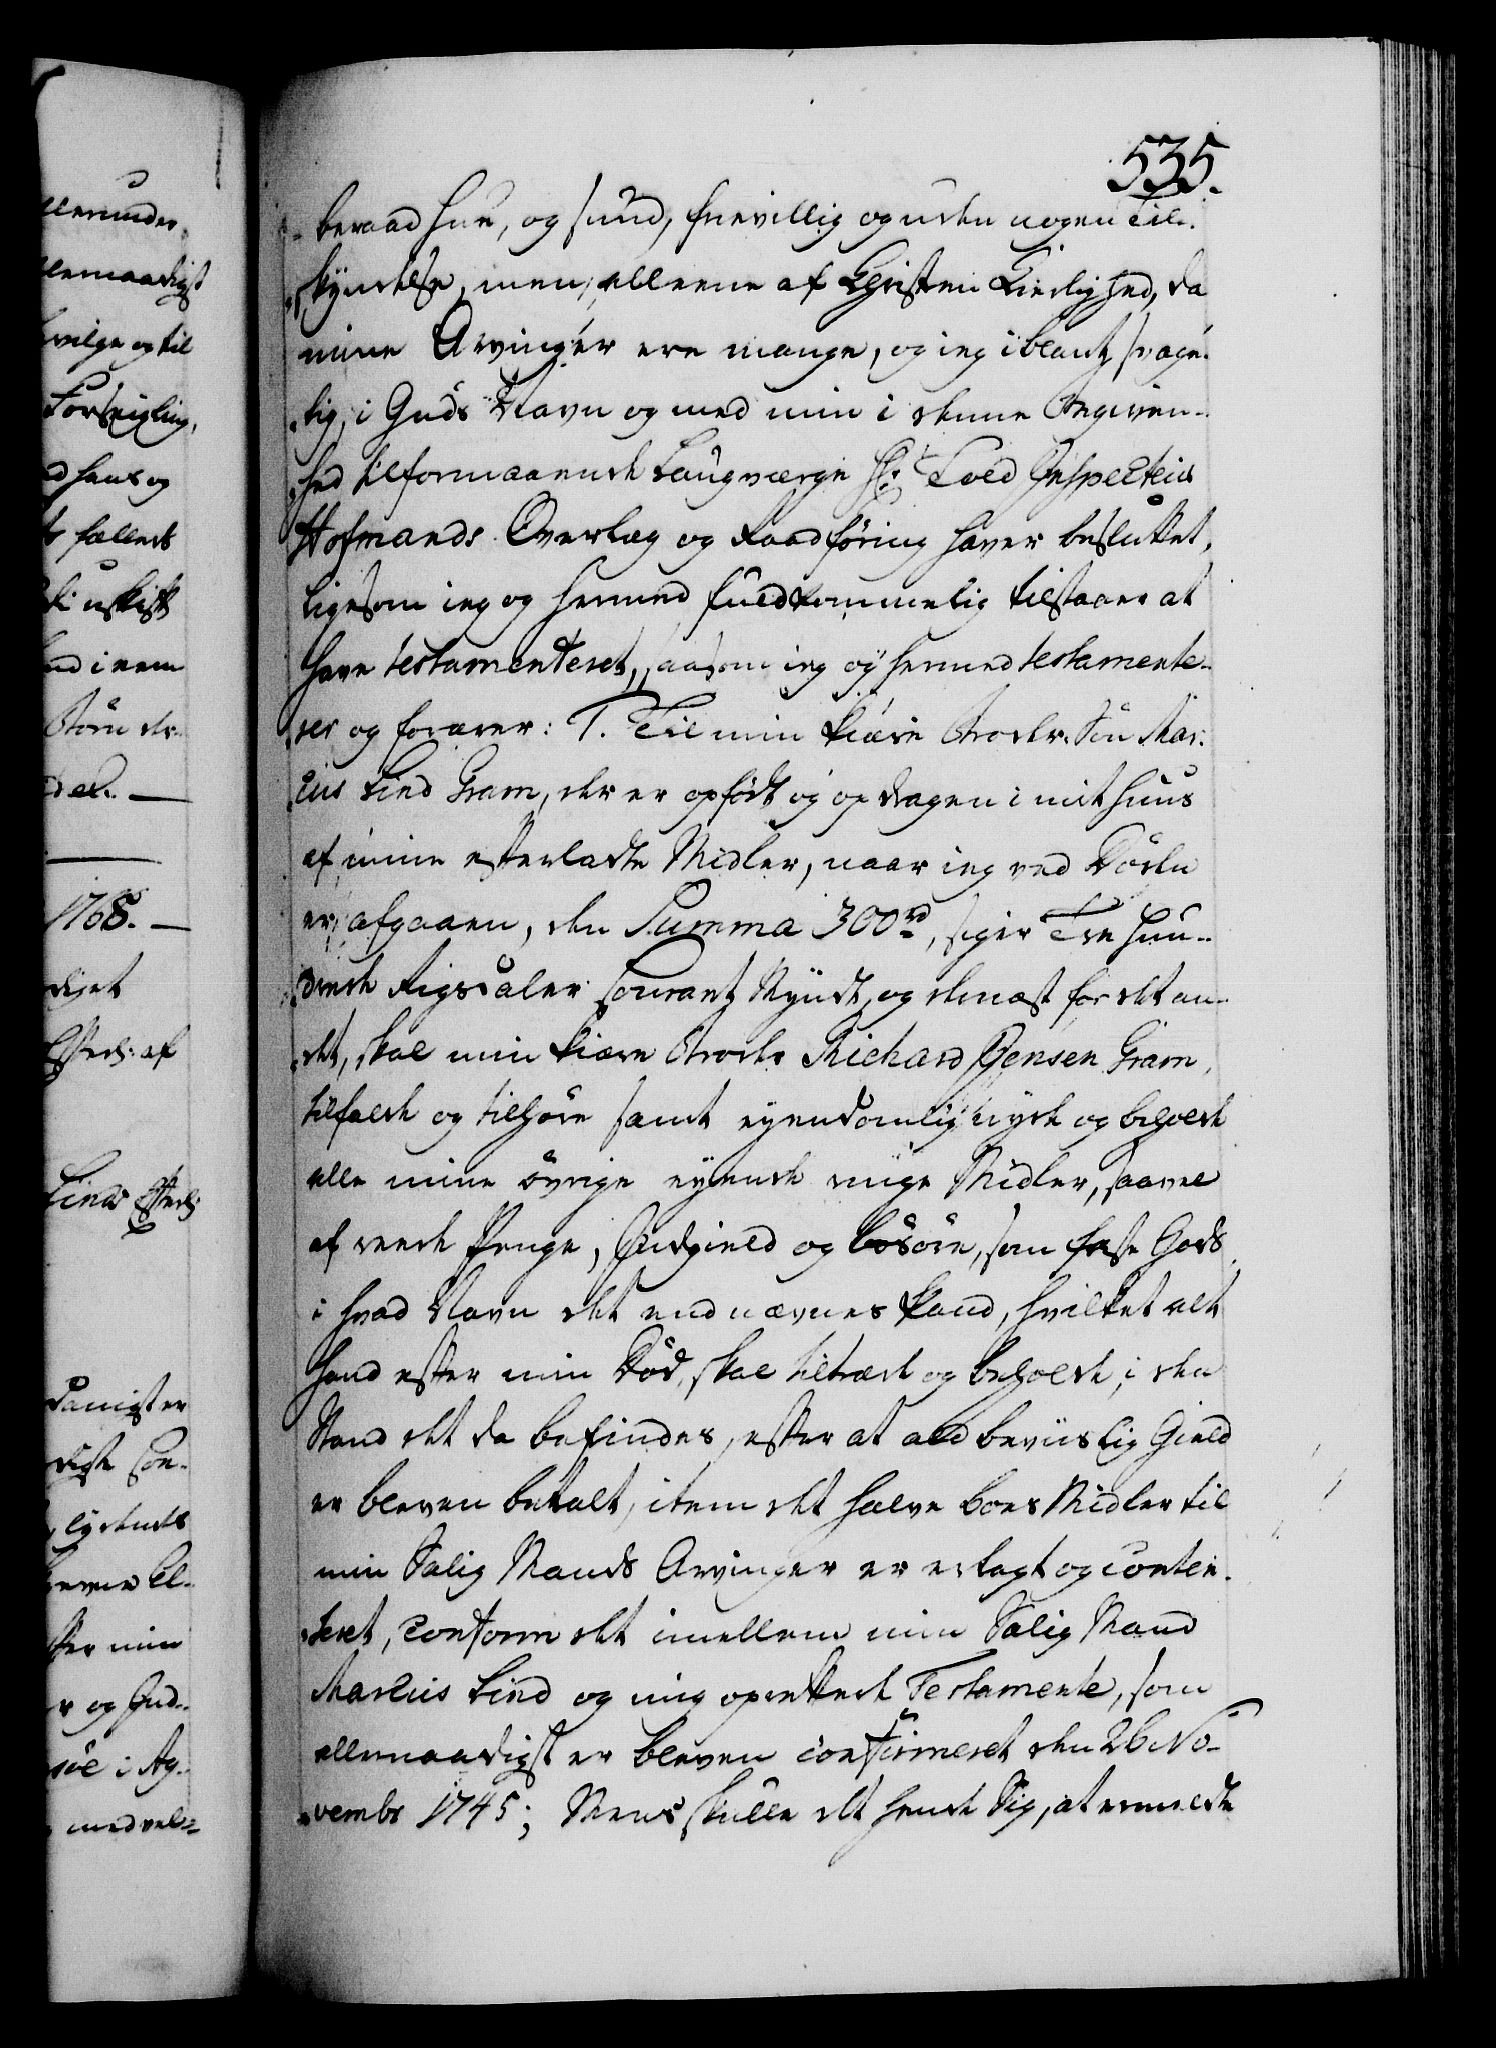 535.
beraad hue, og sund, frievillig og uden nogen Til-
skyndelse, men alleene af Christen Kierlighed, da
mine Arvinger ere mange, og ieg iblant svage-
lig, i Guds Navn og med min i denne Begiven-
hed tilformaaende Laugværge Hr. Told Inspecteur
Hofmands Overlæg og Raadföring haver besluttet,
ligesom ieg og hermed fuldkommelig tilstaaer at
have testamenteret, saasom ieg og hermed testamente-
rer og forærer: 1. Til min kiære Broder Sön Mar-
cus Lind Gram, der er opfödt og opdragen i mit Huus
af mine efterladte Midler, naar ieg ved Döden
er afgaaen, den Summa 300 rd, siger Tre Hun-
drede Rigsdaler Courant Myndt, og dernæst for det an-
det, skal min kiære Broder Richard Jensen Gram,
tilfalde og tilhöre samt eyendomlig nyde og beholde
alle mine övrige eyende rige Midler, saavel
af rede Penge, Indgield og bösöre, som faste Gods
i hvad Navn det end nævnes kand, hvilket alt
hand efter min Död, skal tiltræde og beholde, i den
Stand det da befindes, efter at ald beviislig Gield
er bleven betalt, item det halve Boes Midler til
min Salig Mands Arvinger er erlagt og conten-
teret, conform det imellem min Salig Mand
Marcus Lind og mig oprettede Testamente, som
allernaadigst er bleven confirmeret den 26 No-
vembr 1745; Mens skulle det hende sig, at ermeldte